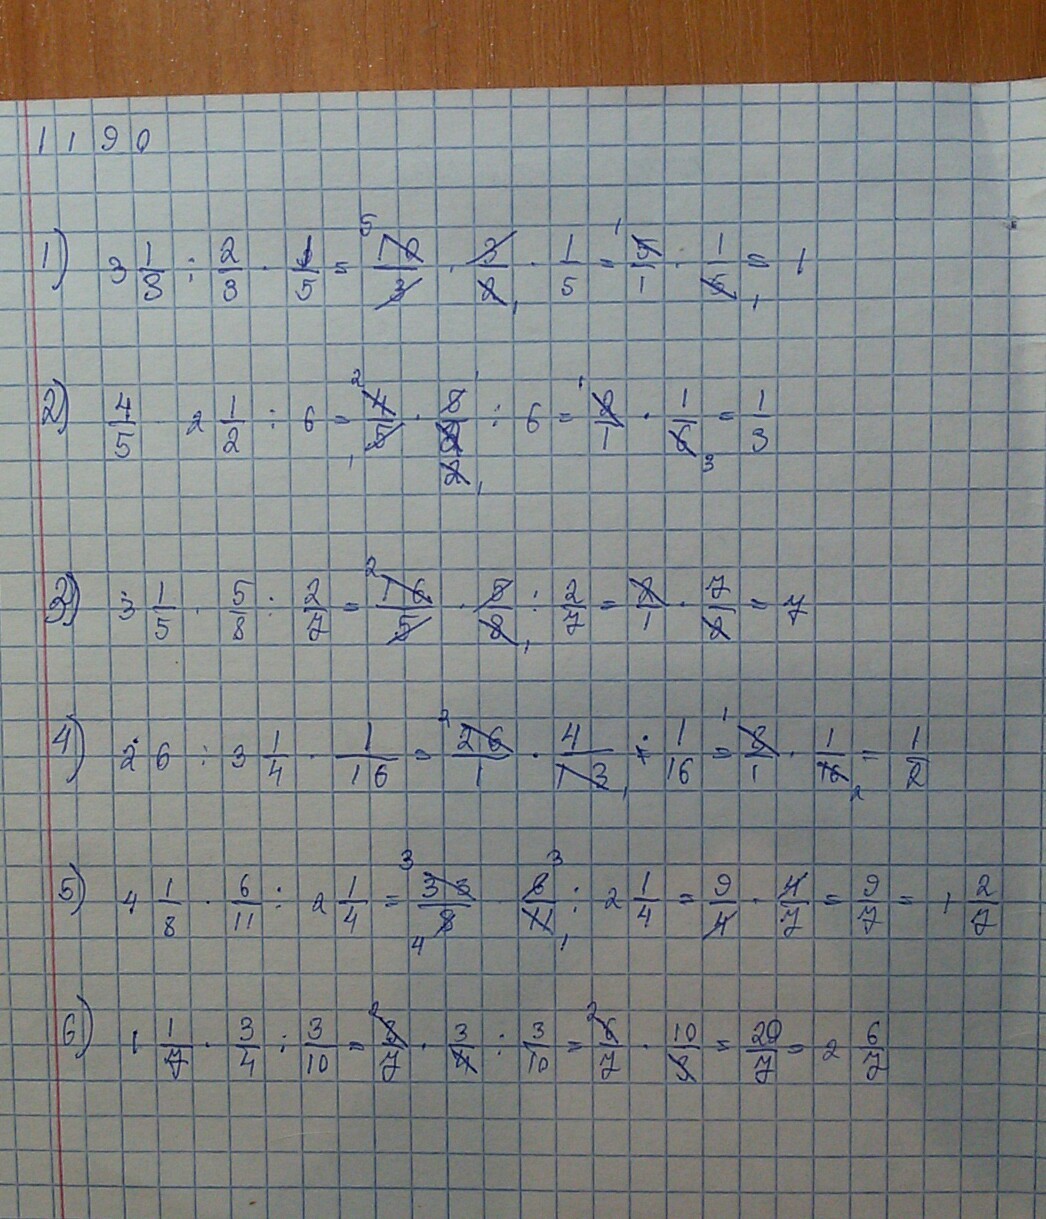 1190
1) 3 1/3 : 2/3 · 1/5 = 10/3 · 3/2 · 1/5 = 5/1 · 1/5 = 1
2) 4/5 2 1/2 : 6 = 4/5 · 5/2 : 6 = 2/1 · 1/6 = 1/3
3) 3 1/5 · 5/8 : 2/7 = 16/5 · 5/8 : 2/7 = 2/1 · 7/2 = 7
4) 26 : 3 1/4 · 1/16 = 26/1 · 4/13 · 1/16 = 8/1 · 1/16 = 1/2
5) 4 1/8 · 6/11 : 2 1/4 = 33/8 · 6/11 : 2 1/4 = 9/4 · 4/7 = 9/7 = 1 2/7
6) 1 1/7 · 3/4 : 3/10 = 8/7 · 3/4 : 3/10 = 6/7 · 10/3 = 20/7 = 2 6/7